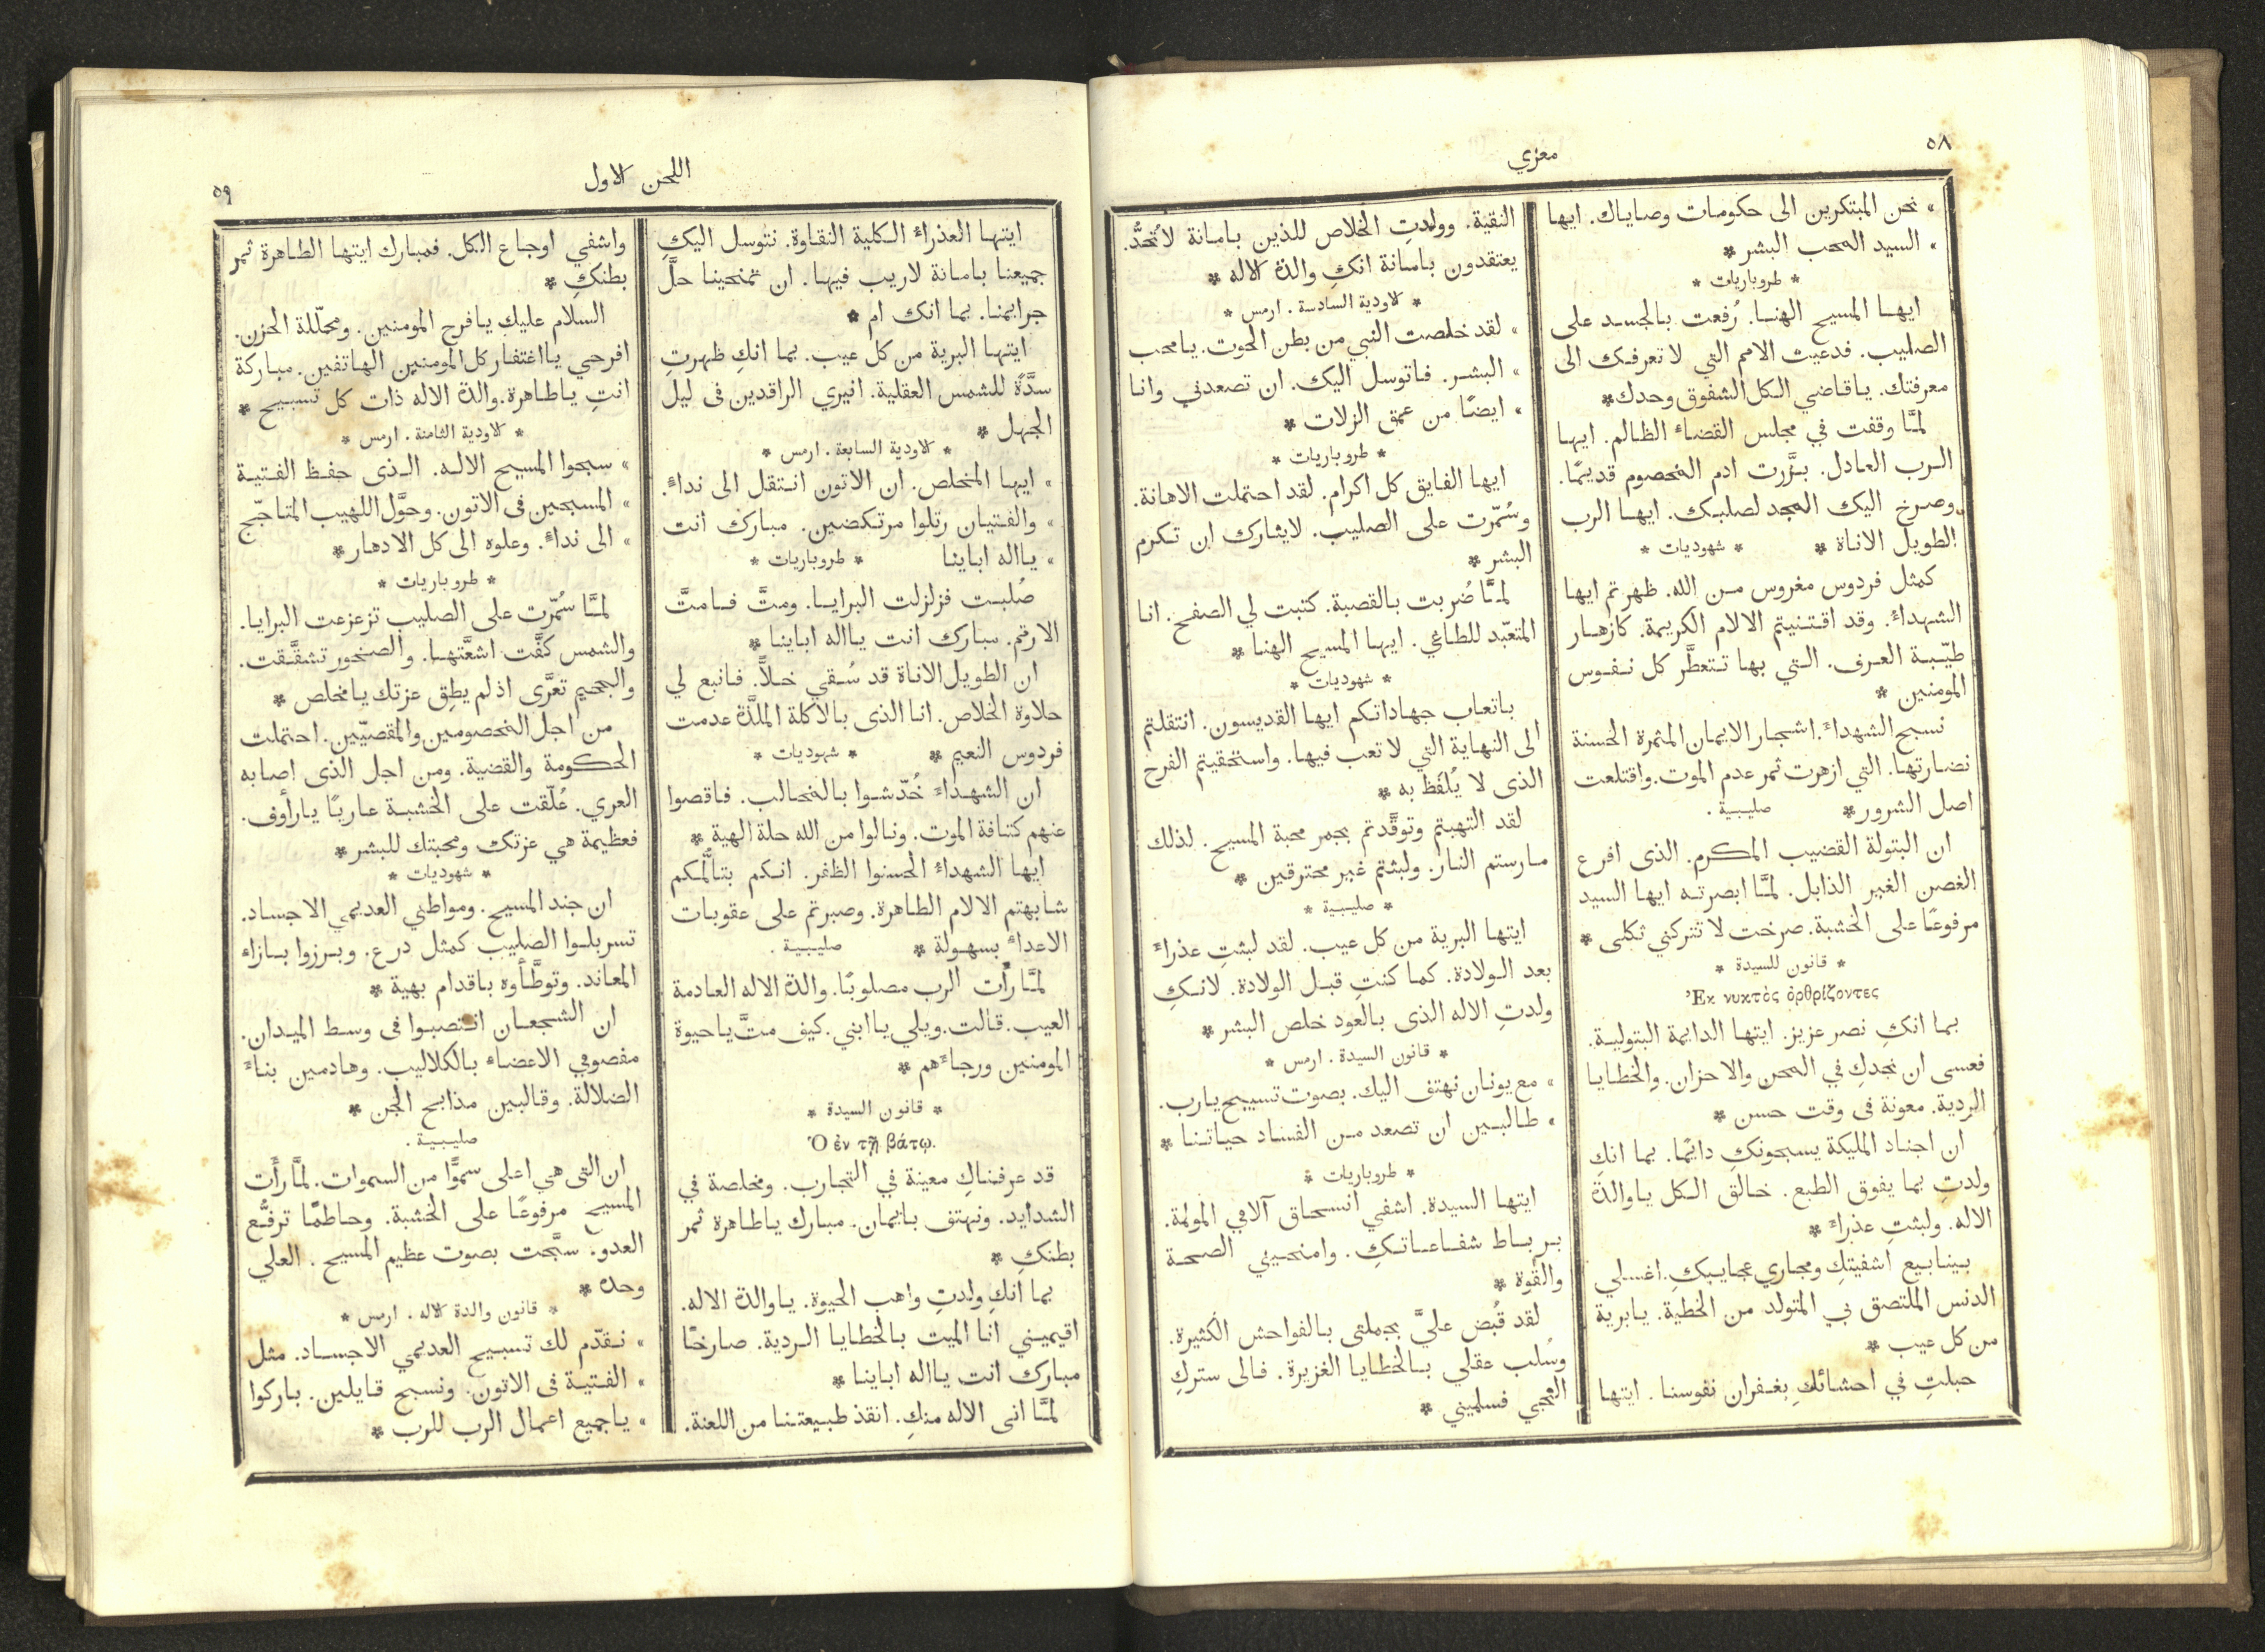 ٥٨
معزي
» نحن المبتكرين الى حكومات وصاياك. ايها
» السيد المحب البشر *
* طروباريات *
ايها المسيح الهنا. رُفعت بالجسد على
الصليب. فدعيت الامم التي لا تعرفك الى
معرفتك. ياقاضي الكل الشفوق وحدك *
لمَّا وقفت في مجلس القضاء الظالم. ايها
الرب العادل. بزَّرت ادم المخصوم قديمًا.
وصرخ اليك المجد لصلبك. ايها الرب
الطويل الاناة * * شهوديات *
كمثل فردوس مغروس من الله. ظهرتم ايها
الشهداء. وقد اقتنيتم الالام الكريمة. كازهار
طيّبة العرف. التي بها تتعطَّر كل نفوس
المومنين *
نسبح الشهداء. اشجار الايمان المثمرة الحسنة
نضارتها. التي ازهرت ثمر عدم الموت. واقتلعت
اصل الشرور * صليبية .
ان البتولة القضيب المكرم. الذى افرع
الغصن الغير الذابل. لمَّا ابصرته ايها السيد
مرفوعًا على الخشبة. صرخت لا تتركني ثكلى *
* قانون للسيدة *
Ἐκ νυκτὸς ὀρθρίζοντες
بما انكِ نصر عزيز. ايتها الدايمة البتولية.
فعسى ان نجدكِ في المحن والاحزان. والخطايا
الردية. معونة فى وقت حسن *
ان اجناد المليكة يسبحونكِ دايمًا. بما انكِ
ولدتِ بما يفوق الطبع. خالق الكل ياوالدة
الاله. ولبثتِ عذراء *
بينابيع اشفيتكِ ومجاري عجايبكِ. اغسلي
الدنس الملتصق بي المتولد من الخطية. يابرية
من كل عيب *
حبلتِ في احشائكِ بغفران نفوسنا. ايتها
النقية. وولدتِ الخلاص للذين بامانة لا تُحَدُّ.
يعتقدون بامانة انكِ والدة الاله *
* الاودية السادسة . ارمس *
» لقد خلصت النبي من بطن الحوت. يامحب
» البشر. فاتوسل اليك. ان تصعدني وانا
» ايضًا من عمق الزلات *
* طروباريات *
ايها الفايق كل اكرام. لقد احتملت الاهانة.
وسُمّرت على الصليب. لايثارك ان تكرم
البشر *
لمَّا ضُربت بالقصبة. كتبت لي الصفح. انا
المتعبّد للطاغي. ايها المسيح الهنا *
* شهوديات *
باتعاب جهاداتكم ايها القديسون. انتقلتم
الى النهاية التي لا تعب فيها. واستحقيتم الفرح
الذى لا يُلفَظ به *
لقد التهبتم وتوقَّدتم بجمر محبة المسيح. لذلك
مارستم النار. ولبثتم غير محترقين *
* صليبية *
ايتها البرية من كل عيب. لقد لبثتِ عذراء
بعد الولادة. كما كنتِ قبل الولادة. لانكِ
ولدتِ الاله الذى بالعود خلص البشر *
* قانون السيدة . ارمس *
» مع يونان نهتف اليك. بصوت تسبيح يارب.
» طالبين ان تصعد من الفساد حياتنا *
* طروباريات *
ايتها السيدة. اشفي انسحاق آلامي المولمة.
برباط شفاعاتكِ. وامنحيني الصحة
والقوة *
لقد قُبض عليَّ بجملتى بالفواحش الكثيرة.
وسُلب عقلي بالخطايا الغزيرة. فالى ستركِ
التجي فسلميني *
اللحن الاول
٥٩
ايتها العذراء الكلية النقاوة. نتوسل اليكِ
جميعنا بامانة لاريب فيها. ان تمنحينا حلَّ
جرايمنا. بما انك ام *
ايتها البرية من كل عيب. بما انكِ ظهرتِ
سدَّةً للشمس العقلية. انيري الراقدين فى ليل
الجهل *
* الاودية السابعة . ارمس *
» ايها المخلص. ان الاتون انتقل الى نداءً.
» والفتيان رتلوا مرتكضين. مبارك انت
» يااله اباينا * طروباريات *
صُلبت فزلزلت البرايا. ومتَّ فامتَّ
الارقم. مبارك انت يااله اباينا *
ان الطويل الاناة قد سُقي خلاًّ. فانبع لي
حلاوة الخلاص. انا الذى بالاكلة الملذَّة عدمت
فردوس النعيم * * شهوديات *
ان الشهداء خُدّشوا بالمخالب. فاقصوا
عنهم كثافة الموت. ونالوا من الله حلة الهية *
ايها الشهداء الحسنوا الظفر. انكم بتالُّمكم
شابهتم الالام الطاهرة. وصبرتم على عقوبات
الاعداء بسهولة * صليبية .
لمَّا رأت الرب مصلوبًا. والدة الاله العادمة
العيب. قالت. ويلي ياابني. كيف متَّ ياحيوة
المومنين ورجاءهم *
* قانون السيدة *
Ὁ ἐν τῇ βάτῳ.
قد عرفناكِ معينة في التجارب. ومخلصة في
الشدايد. ونهتف بايمان. مبارك ياطاهرة ثمر
بطنكِ *
بما انكِ ولدتِ واهب الحيوة. ياوالدة الاله.
اقيميني انا الميت بالخطايا الردية. صارخًا
مبارك انت يااله اباينا *
لمَّا اتى الاله منكِ. انقذ طبيعتنا من اللعنة.
واشفي اوجاع الكل. فمبارك ايتها الطاهرة ثمر
بطنكِ *
السلام عليك يافرح المومنين. ومحلّلة الحزن.
افرحي ياافتخار كل المومنين الهاتفين. مباركة
انتِ ياطاهرة. والدة الاله ذات كل تسبيح *
* الاودية الثامنة . ارمس *
» سبحوا المسيح الاله. الذى حفظ الفتية
» المسبحين فى الاتون. وحوَّل اللهيب المتاجّج
» الى نداءً. وعلوه الى كل الادهار *
* طروباريات *
لمَّا سُمّرت على الصليب تزعزعت البرايا.
والشمس كفَّت اشعَّتها. والصخور تشقَّقت.
والجحيم تعرَّى اذ لم يطِق عزتك يامخلص *
من اجل المخصومين والمقصيّين. احتملت
الحكومة والقضية. ومن اجل الذى اصابه
العري. عُلّقت على الخشبة عاريًا يارأوف.
فعظيمة هي عزتك ومحبتك للبشر *
* شهوديات *
ان جند المسيح. ومواطني العديمي الاجساد.
تسربلوا الصليب كمثل درع. وبرزوا بازاء
المعاند. وتوطَّأوه باقدام بهية *
ان الشجعان انتصبوا فى وسط الميدان.
مفصومي الاعضاء بالكلاليب. وهادمين بناء
الضلالة. وقالبين مذابح الجن *
صليبية .
ان التى هي اعلى سموًّا من السموات. لمَّا رأَت
المسيح مرفوعًا على الخشبة. وحاطمًا ترفُّع
العدو. سبَّحت بصوت عظيم المسيح. العلي
وحده *
* قانون والدة الاله . ارمس *
» نقدّم لك تسبيح العديمي الاجساد. مثل
» الفتية فى الاتون. ونسبح قايلين. باركوا
» ياجميع اعمال الرب للرب *